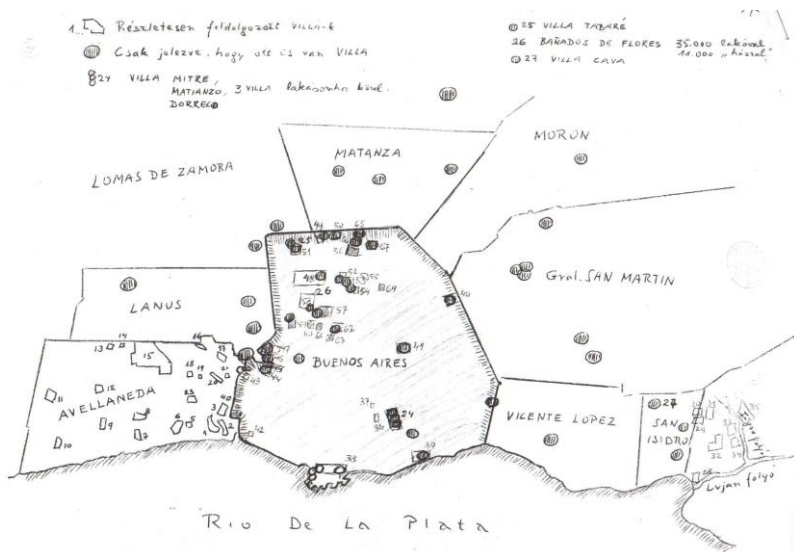 1. Részletesen feldolgozott VILLA-k
Csak jelezve, hogy ott is van VILLA
24 VILLA MITRE,
MATIANZO, 3 VILLA lakásonha közel.
DORREGO
25 VILLA TABARÉ
26 BAÑADOS DE FLORES 35.000 lakóval
11.000 „házzal"
27 VILLA CAVA
LOMAS DE ZAMORA
MATANZA
MORÓN
Gral. SAN MARTIN
LANUS
AVELLANEDA
BUENOS AIRES
VICENTE LOPEZ
SAN
ISIDRO
Lujan folyó
Rio De La Plata
49
50
65
25
51
67
48
52
55
54
64
26
57
62
63
40
49
47
43
42
37
24
36
39
33
14
13
15
16
17
18
19
21
20
23
40
11
12
9
8
7
10
6
5
3
1
2
27
32
34
35